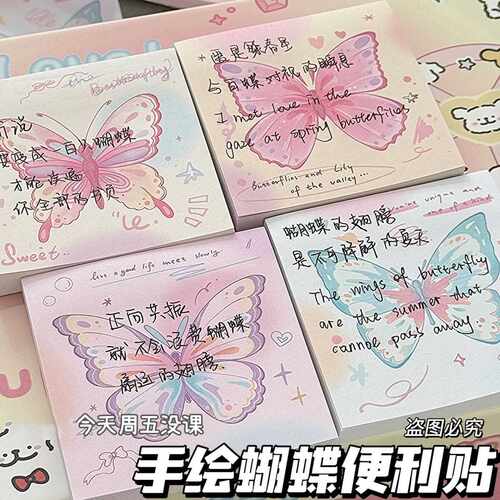 Be the
Butterfly
变成 白人蝴蝶
才能
你全部的书页
Sweet...
还是像春天
与白蝶对视的瞬息
I met love in the
gaze at spring butterflies
Butterflies and Lily
of the valley...
live a good life meet slowly
正向共振
就不会浪费蝴蝶
扇过的翅膀
unique and
蝴蝶的翅膀
是不可降解的夏天
The wings of butterfly
are the summer that
cannot pass away
今天周五没课
盗图必究
手绘蝴蝶便利贴